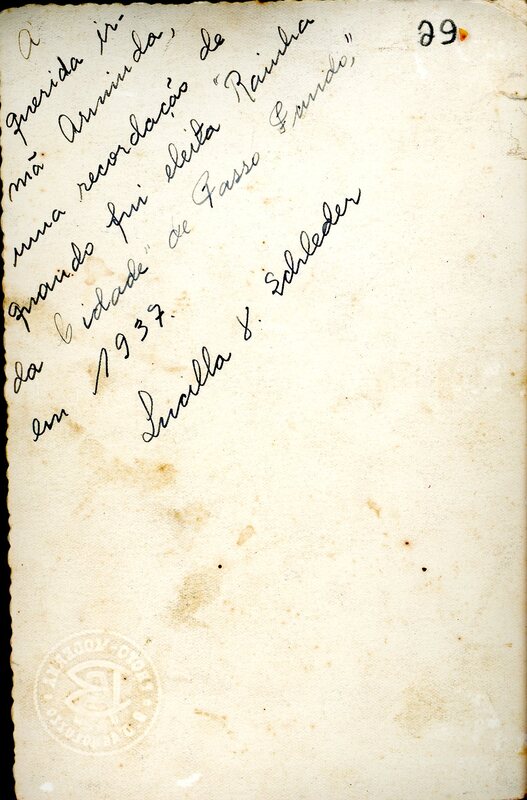 29.
A
querida ir-
mã Arminda,
uma recordação de
quando fui eleita "Rainha
da Cidade" de Passo Fundo,
em 1937.
Lucilla Schleder